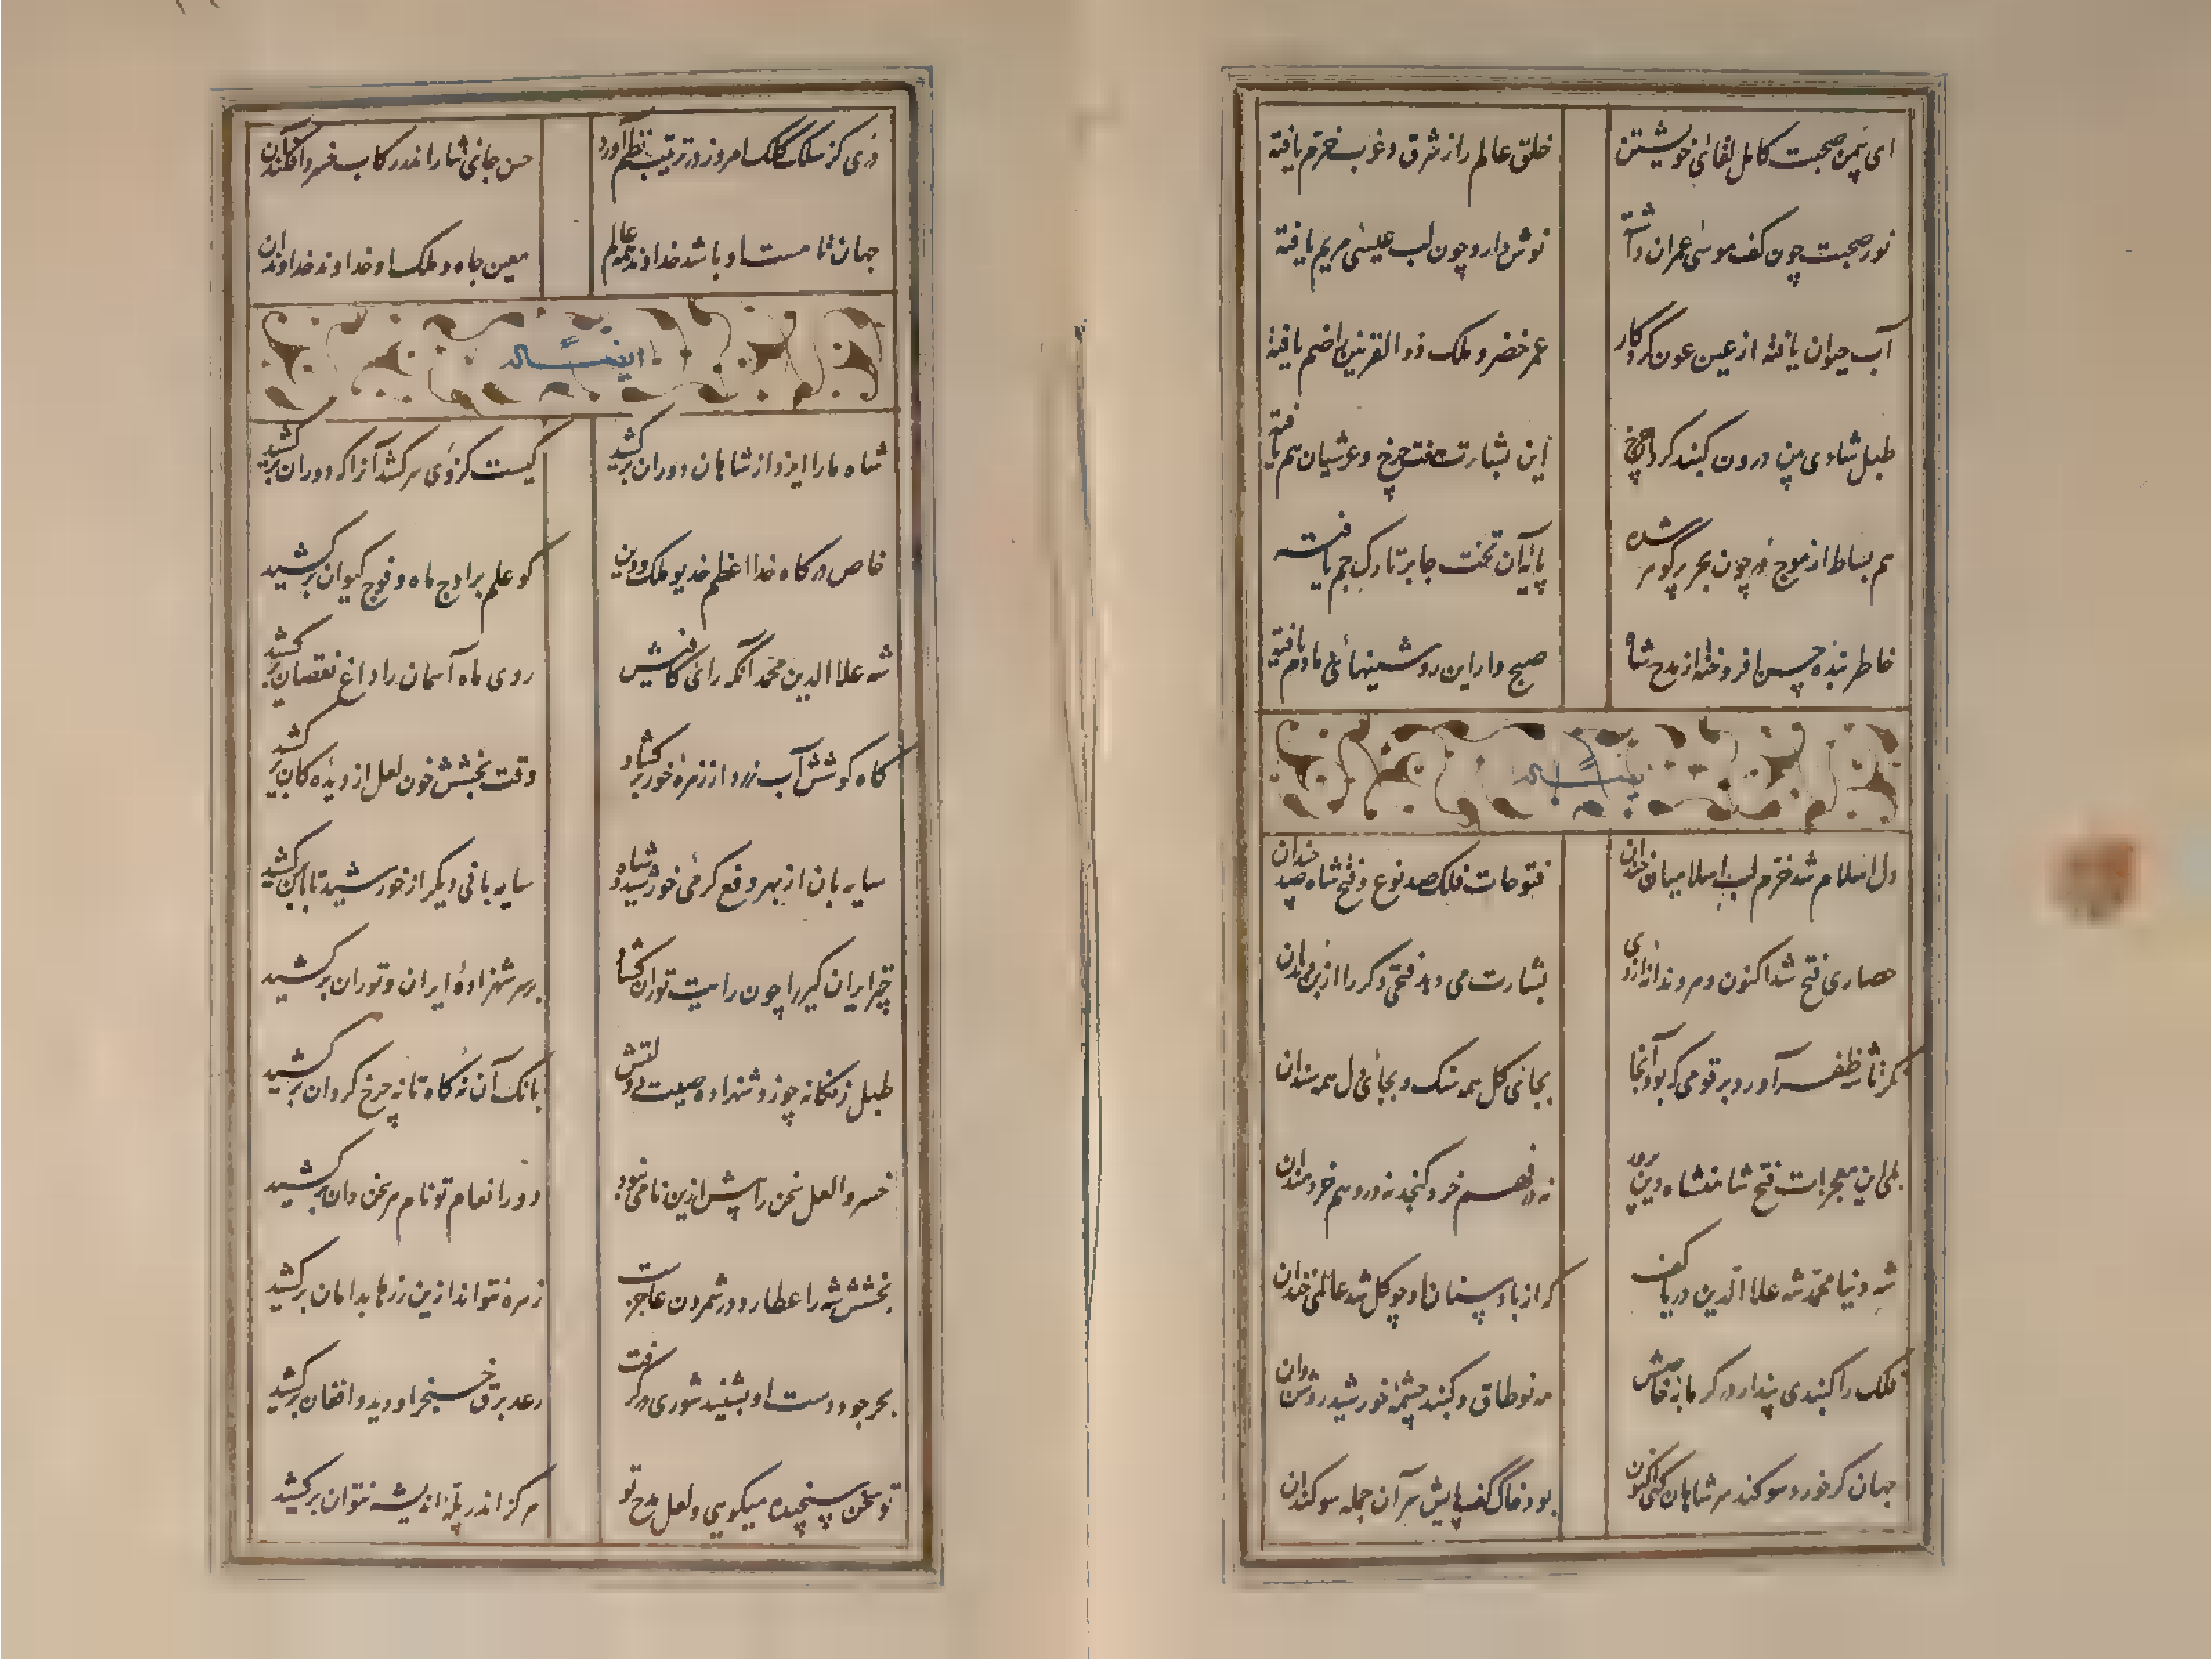 ای بیمن صحبت کامل لقائی خویشتن
خلق عالم را ز شرق و غرب خرم یافته
نور صحبت چون کف موسی عمران داشته
نوش دارو چون لب عیسی مریم یافته
آب حیوان یافته از عین عون کردگار
عمر خضر و ملک ذوالقرنین اضم یافته
طبل شادی بین درون کنبد کردان چرخ
این بشارت هفت چرخ و عرشیان هم یافته
هم بساط از موج در چون بحر پر گوهر شده
پایهٔ آن تخت جا بر تارک جم یافته
خاطر بنده حسن افروخته از مدح شاه
صبح وار این روشینهائی مادم یافته
دل اسلام شد خرم لب اسلامیان خندان
فتوحات فلک صد نوع و فتح شاه صد چندان
حصاری فتح شد اکنون
بشارت می دهد فتحی دکر را از بن دندان
ظفر آورد بر قومی که بود آنجا
بجائی کل همه سنک و بجائی دل همه سندان
بلی این معجزات فتح شاهنشاه دین پرور
نه در فهم خرد کنجد نه در وهم خردمندان
شه دنیا محمد شه علاالدین دریا کف
کز از باد سنان او چو کل شد عالمی خندان
فلک را کنبدی پندار در کرمابهٔ خاصش
مه نو طاق و کنبد چشمهٔ خورشید روشن دان
جهان کر خورد سوکند سر شاهان کنی اکنون
بود خاک کف پایش سر آن جمله سوکندان
دری کز سلک کلک امروز در ترتیب نظم آورد
حسن جانی ثنا را اندر رکاب خسرو افکند آن
جهان تا هست او باشد خداوند همه عالم
معین جاه و ملک او خداوند خداوندان
ایضاً له
شاه ما را ایزد از شاهان دوران برکشید
کیست کز وی سر کشد آنرا که دوران برکشید
خاص درکاه خدا اعظم خدیو ملک و دین
کو علم بر اوج ماه و فوج کیوان برکشید
شه علاالدین محمد آنکه رای کاملش
روی ماه آسمان را داغ نقصان برکشید
کاه کوشش آب زرد از زهرهٔ خور برکشاد
وقت بخشش خون لعل از دیدهٔ کان برکشید
سایه بان از بهر دفع کرمی خورشید و شاه
سایه بانی دیکر از خورشید تابان برکشید
چتر ایران کیر را چون رایت توران کشا
بر سر شهزادهٔ ایران و توران برکشید
طبل زنکانه چو زد شهزاده صیت دولتش
بانک آن نه کاه تا نه چرخ کردان برکشید
خسروا لعل سخن را پیش ازین نامی نبود
دور انعام تو نام هر سخن دان برکشید
بخشش شه را عطارد در شمردن عاجزست
زهره نتواند ازین زرها بدامان برکشید
بحر جود دست او بشنید شوری درکرفت
رعد برق خنجر او دید و افغان برکشید
تو سخن سنجیده میکویی و لعل مدح تو
هرکز اندر پلهٔ اندیشه نتوان برکشید